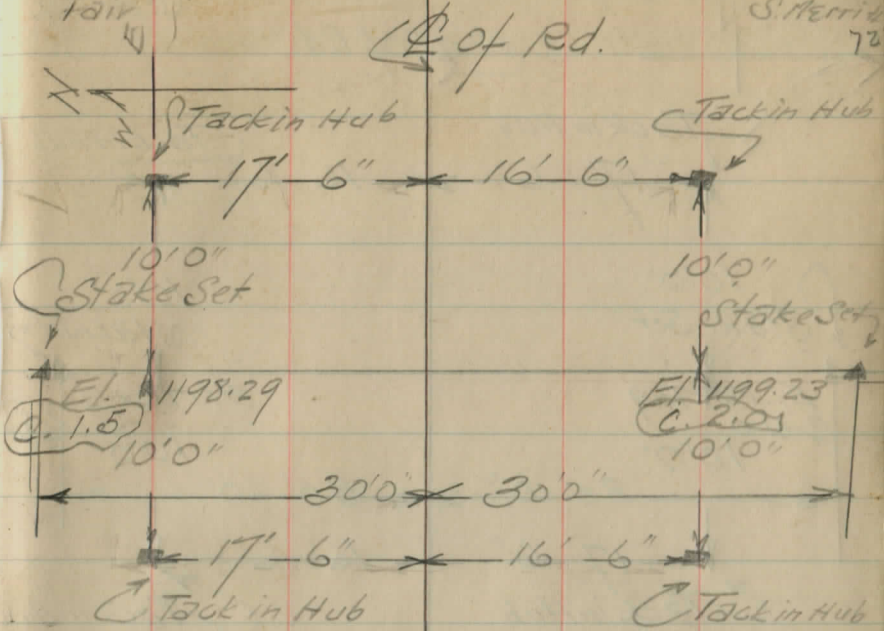 Fair
S. Merrit
72
E
℄ of Rd.
N
W
Tack in Hub
Tack in Hub
17' 6" 16' 6"
10'0" 10'0"
Stake Set
Stake Set
El. 1198.29 El. 1199.23
C. 1.5 C. 2.0
10'0" 10'0"
30'0" 30'0"
17' 6" 16' 6"
Tack in Hub Tack in Hub